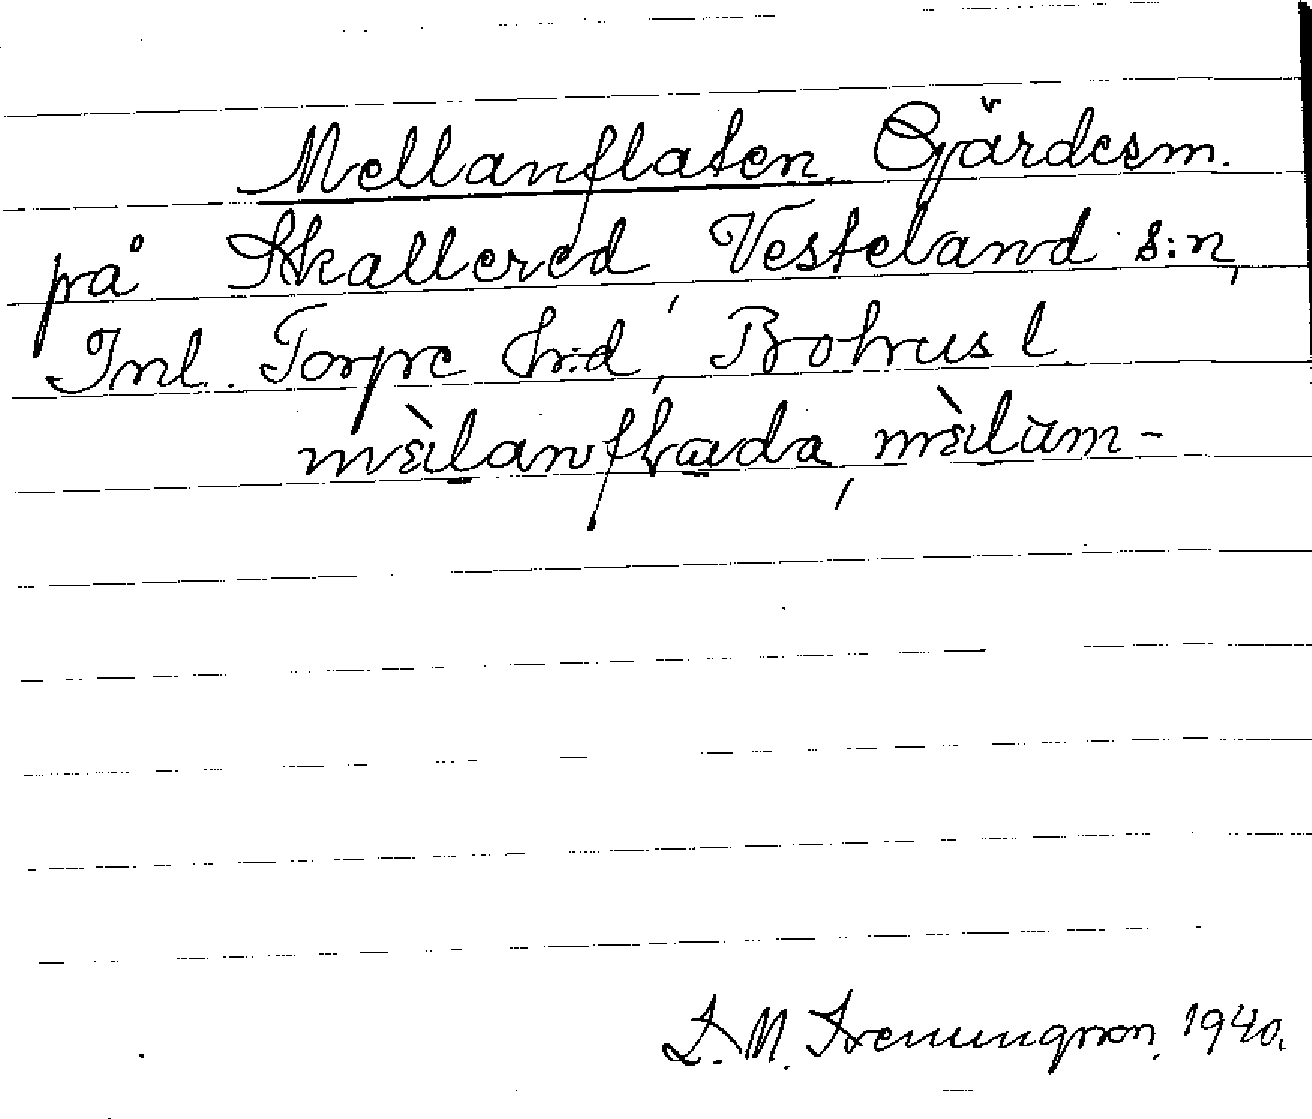 Mellanflaten. Gjärdesm.
på Skallered Vesterland s:n,
Inl. Torpe hrd, Bohus l.
mèlanflada, mèlam-
1940.